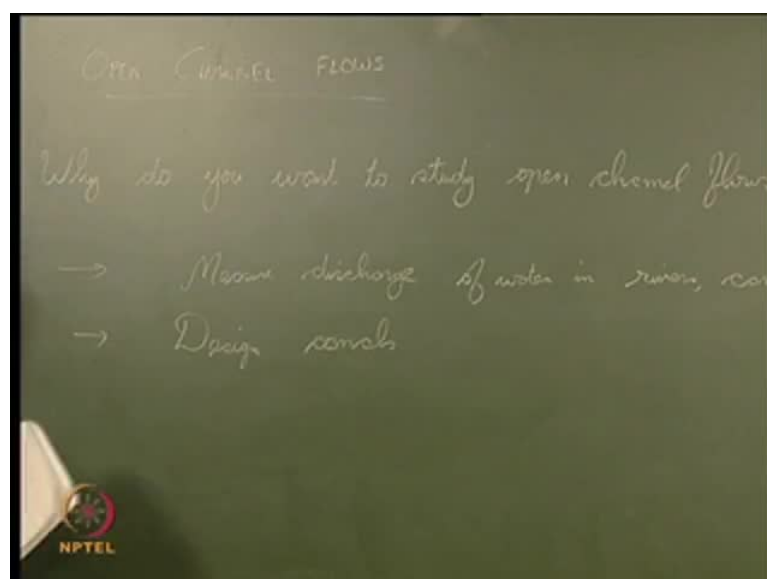 OPEN CHANNEL FLOWS
Why do you want to study open channel flows
→ Measure discharge of water in rivers, can
→ Design canals
NPTEL